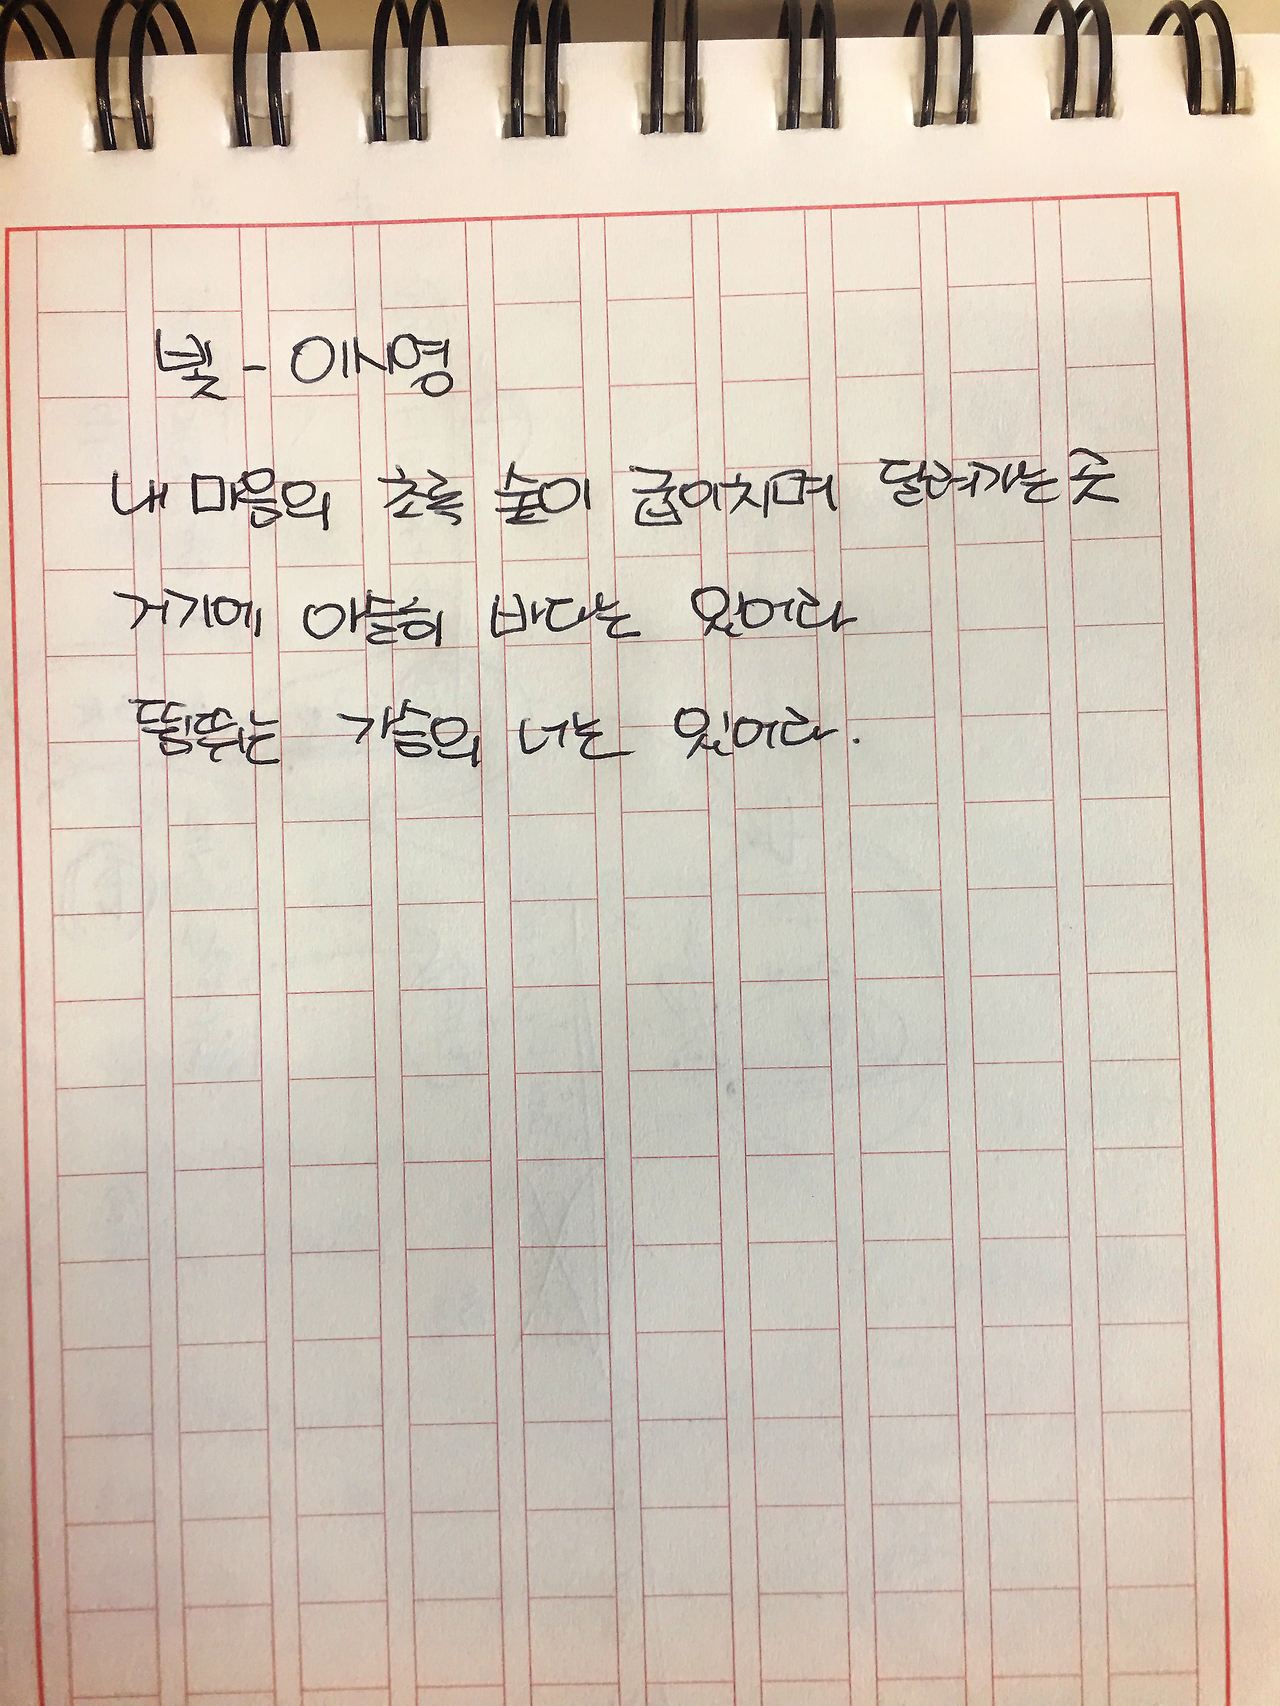 빛 - 이시영
내 마음의 초록 숲이 굽이치며 달려가는 곳
거기에 아슬히 바다는 있어라
뜀뛰는 가슴의 너는 있어라.